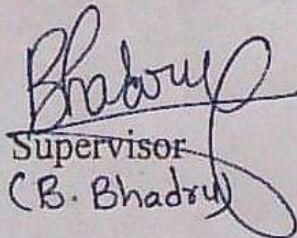 Bhadru
Supervisor
(B. Bhadru)